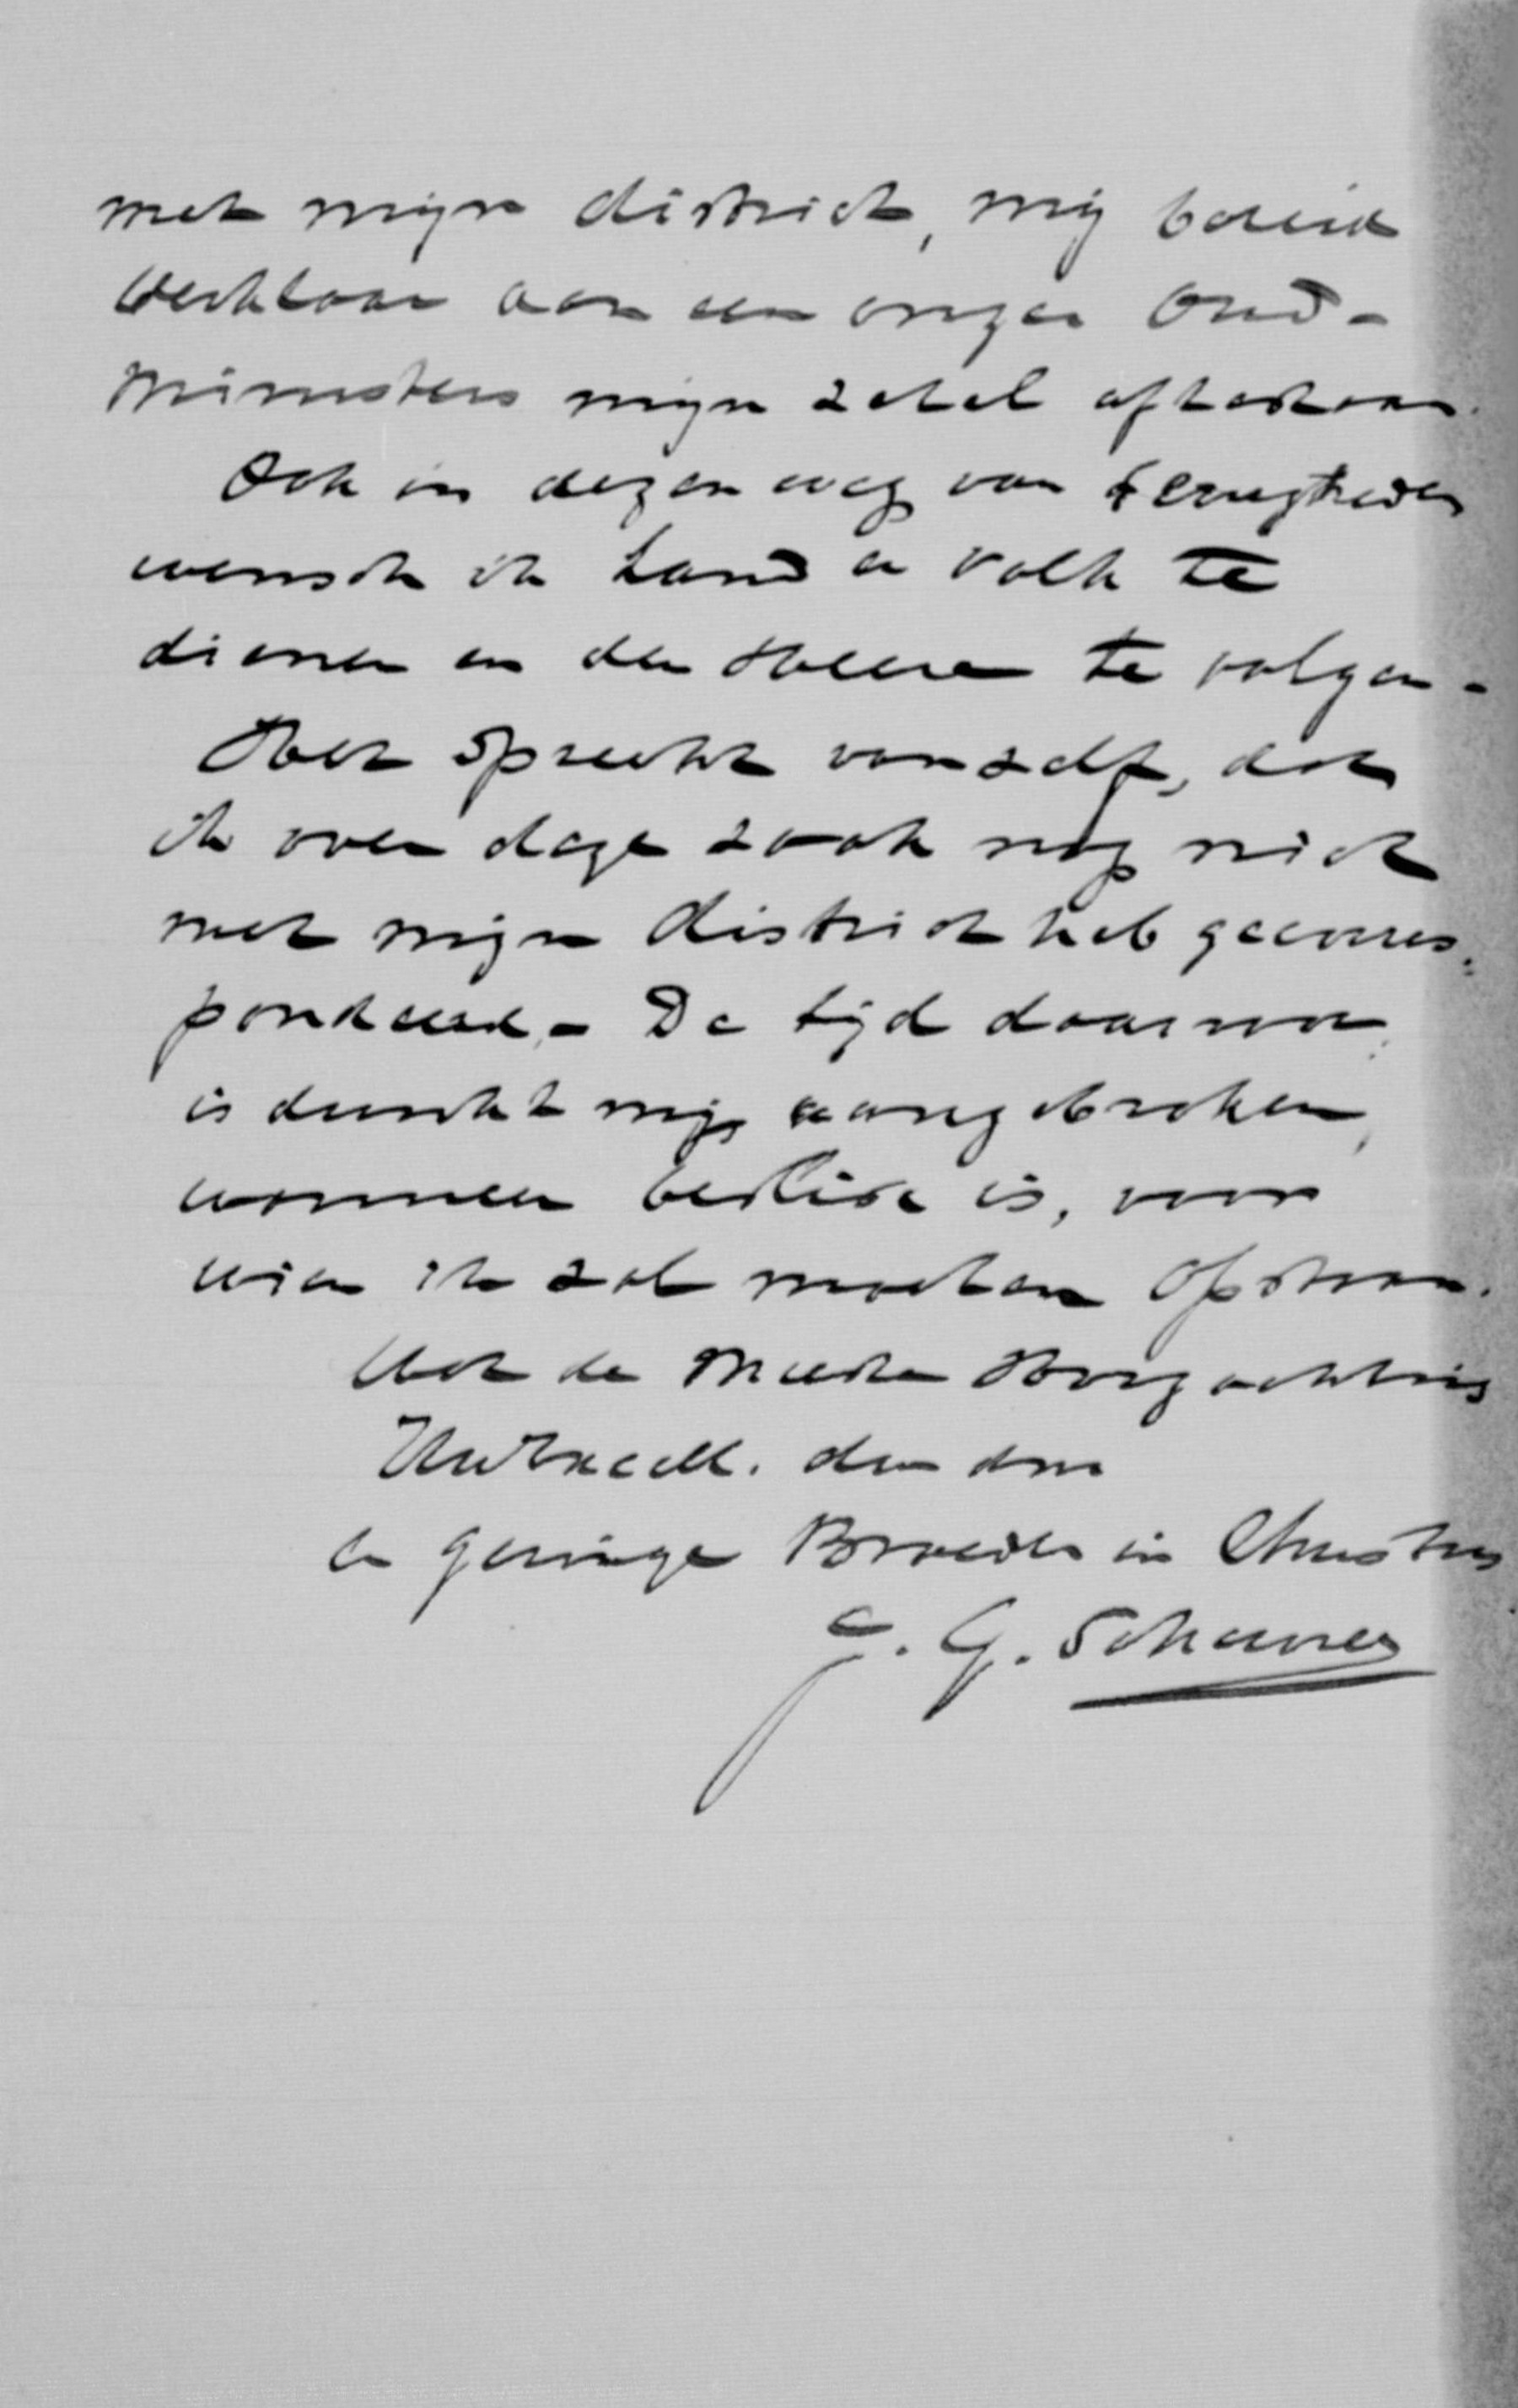 met mijn district, mij bereid
verklaar aan een onzer Oud-
Ministers mijn zetel aftestaan.
Ook in dezen weg van terugtreden
wensch ik Land en Volk te
dienen en den Heere te volgen.
Het spreekt vanzelf, dat
ik over deze zaak nog niet
met mijn district heb gecorres-
pondeerd. - De tijd daarvoor
is dunkt mij aangebroken,
wanneer beslist is, voor
wien ik zal moeten opstaan.
Met de meeste Hoogachting
Uw Excell. dw dnr
en geringe Broeder in Christus
J. G. Scheurer